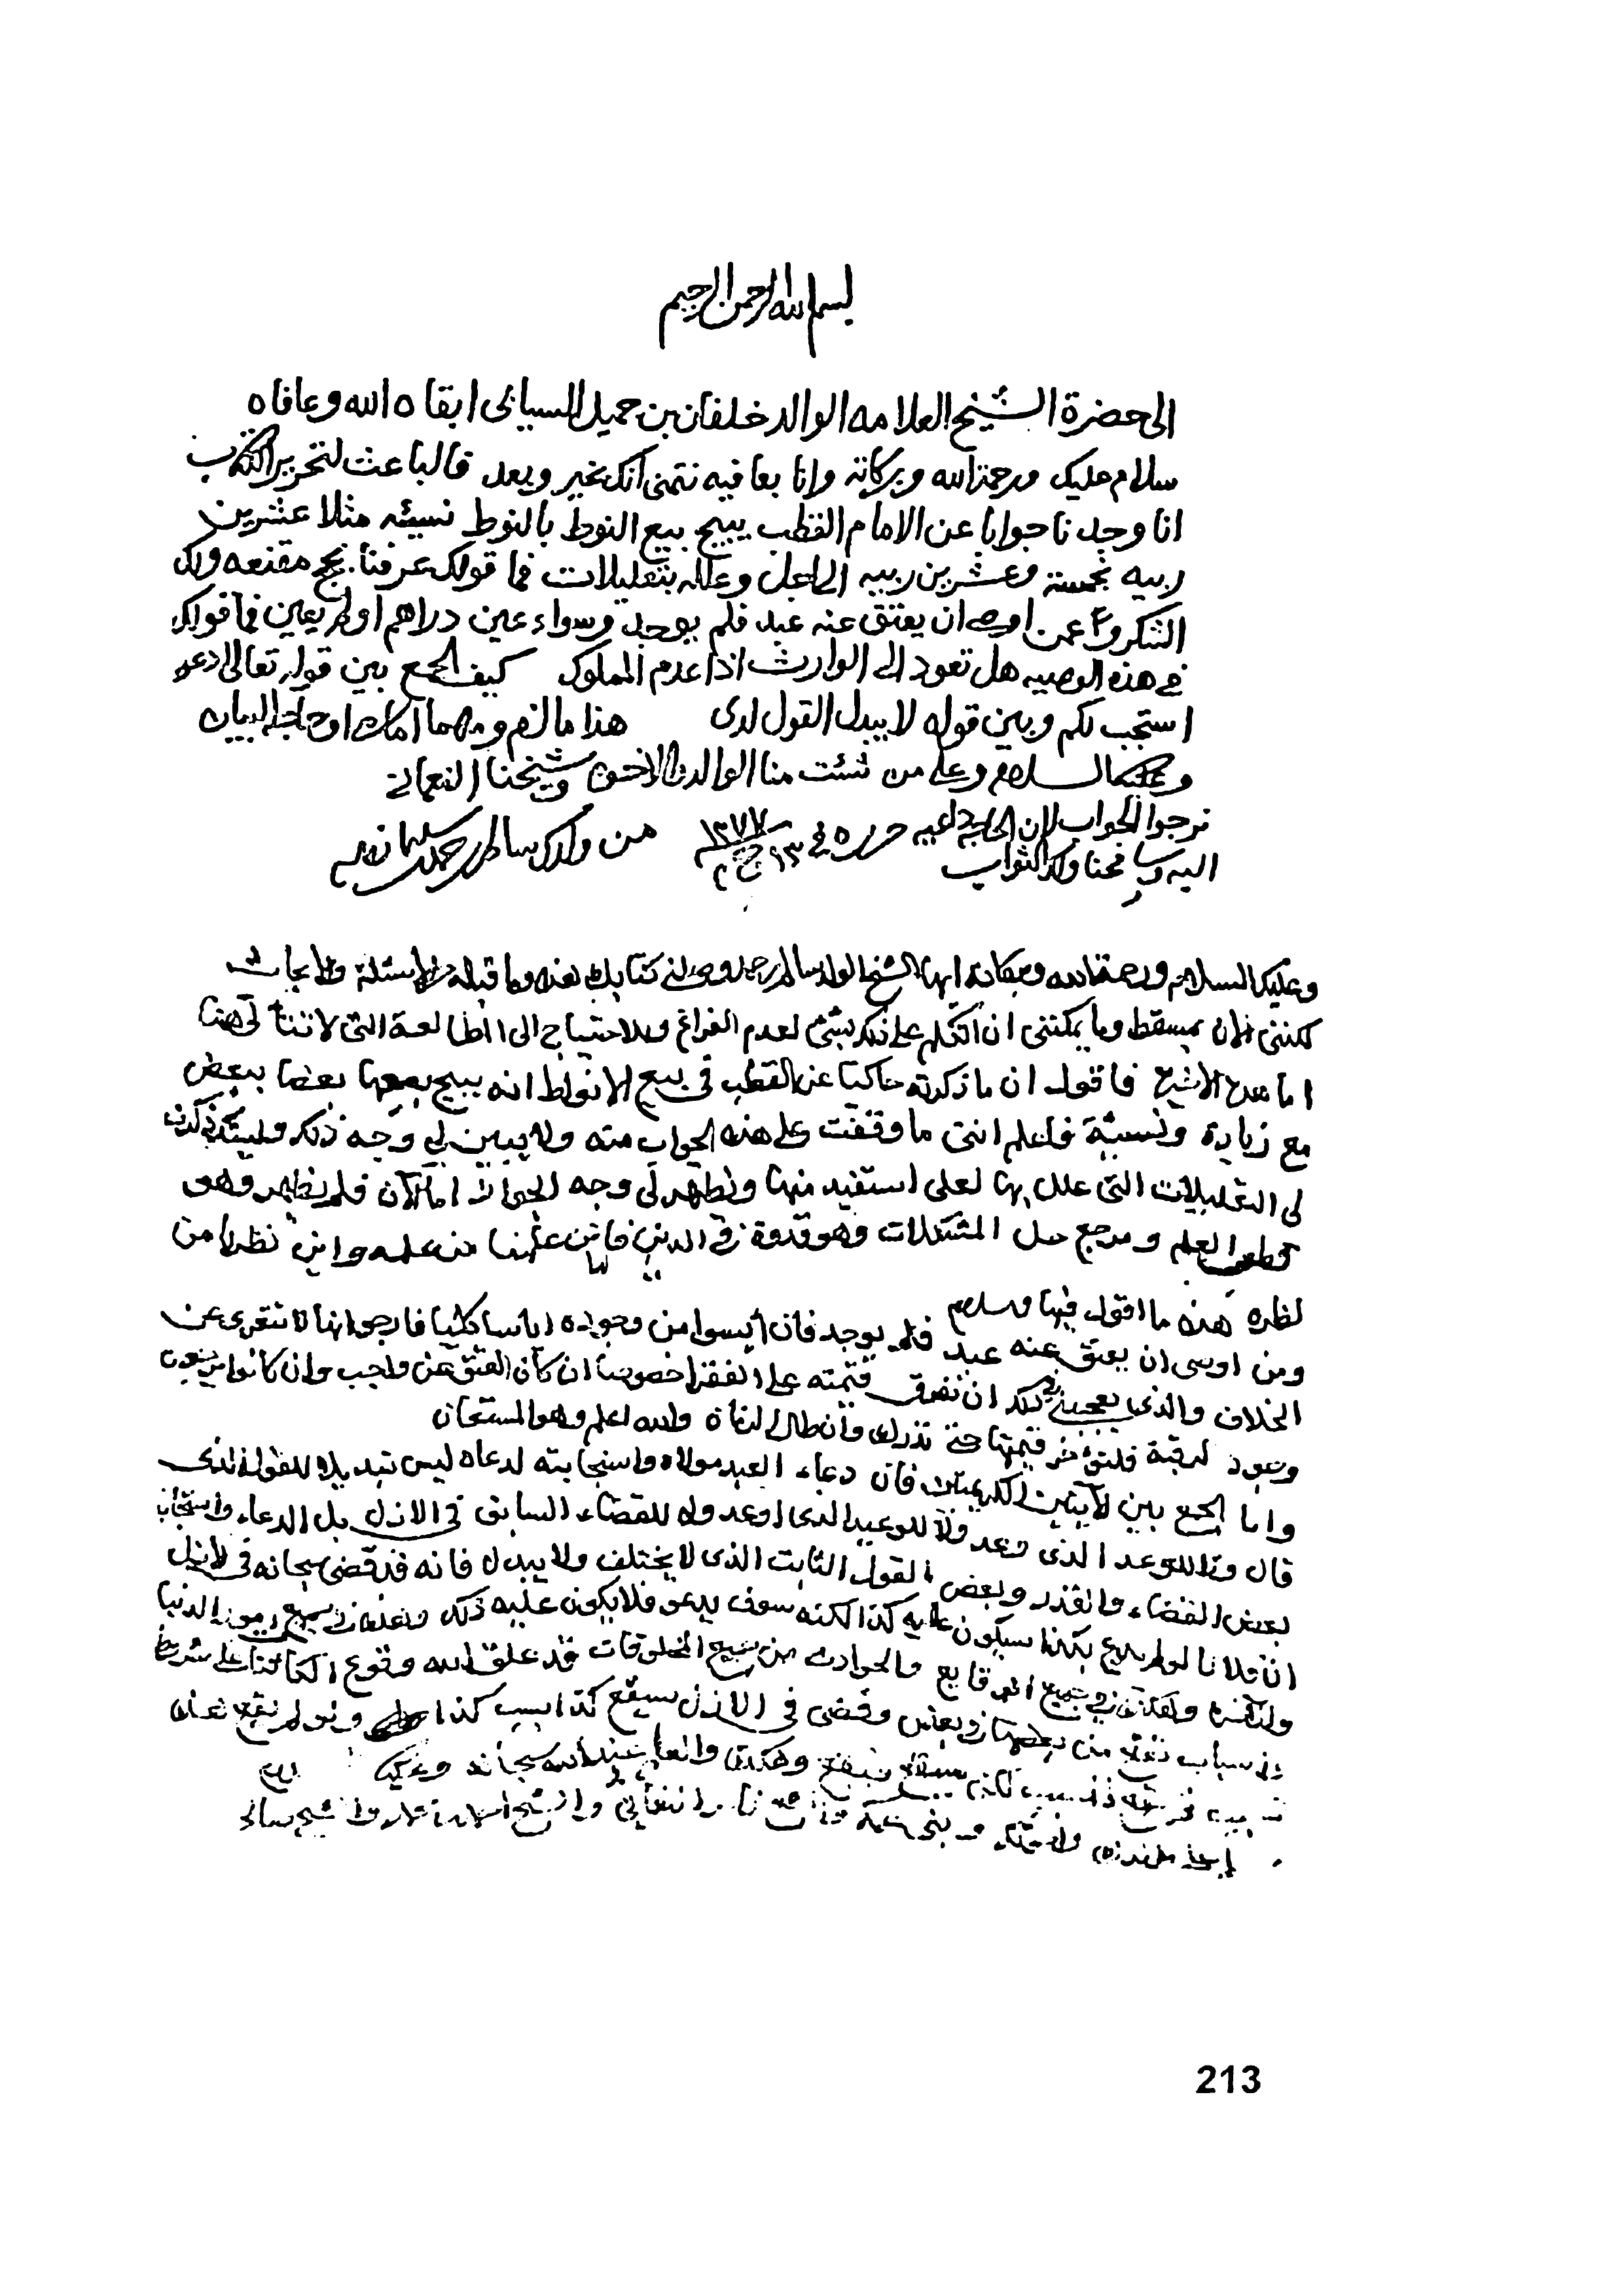 بسم الله الرحمن الرحيم
الى حضرة الشيخ العلامه الوالد خلفان بن جميل السيابي ابقاه الله وعافاه
سلام عليك ورحمة الله وبركاته وانا بعافيه نتمنى انك بخير وبعد فالباعث لتحرير الكتاب
انا وجدنا جوابا عن الامام القطب يبيح بيع النوط بالنوط نسيئه مثلا عشرين
ربيه بخمسة وعشرين ربيه الى اجل وعلله بتعليلات فما قولك عرفنا بحجج مقنعه ولك
الشكر وعمن اوصى ان يعتق عنه عبد فلم يوجد وسواء عين دراهم او لم يعين فما قولك
في هذه الوصيه هل تعود الى الوارث اذا عدم المملوك كيف الجمع بين قوله تعالى ادعوني
استجب لكم وبين قوله لا يبدل القول لدي هذا ما لزم ومهما
وعليكم السلام وعلى من شئت منا الوالد والاخوة وشيخنا النعماني
نرجوا الجواب لان الحاجه داعيه حرره في ١٣ ج ١٣٧٧
اليه وسامحنا ولك الثواب من ولدك سالم بن حمد بن سليمان
وعليك السلام ورحمة الله وبركاته ايها الشيخ الولد سالم بن حمد وصلني كتابك هذا وما قبله من الاسئلة والابحاث
لكنني الان بمسقط وما يمكنني ان اتكلم على ذلك بشئ لعدم الفراغ وللاحتياج الى المطالعة التي لا تتأتى هنا
اما فاقول ان ما ذكرته حاكيا عن القطب في بيع الانواط انه يبيح بيعها بعضا ببعض
مع زيادة ونسيئة فاعلم انني ما وقفت على هذه الجواب منه ولا يبين لي وجه ذلك وليتك ذكرت
لي التعليلات التي علل بها لعلي استفيد منها ويظهر لي وجه الجواز اما الآن فلم يظهر وهو
قطب العلم ومرجع حل المشكلات وهو قدوة في الدين فاين علمنا من علمه واين نظرنا من
نظره هذه ما اقول فيها وسلام
ومن اوصى ان يعتق عنه عبد فلم يوجد فان أيسوا من وجوده اياسا كليا فارجو انها لا تتعرى عن
الخلاف والذي يعجبني في ذلك ان تفرق قيمته على الفقرا خصوصا ان كان العتق عن واجب وان كانوا يرجون
وجود الرقبة فلتؤخر قيمتها حتى تدرك وان طال الزمان والله اعلم وهو المستعان
واما الجمع بين الآيتين الكريمتين فان دعاء العبد مولاه واستجابته لدعاه ليس تبديلا للقول الذي
قال ولا للوعد الذي وعد ولا للوعيد الذي اوعد ولا للقضاء السابق في الازل بل الدعاء واستجابته
بعض القضاء والقدر وبعض القول الثابت الذي لا يختلف ولا يبدل فانه قد قضى سبحانه في الازل
ان فلانا لو لم يدع بكذا سيكون عليه كذا لكنه سوف يدعو فلا يكون عليه ذلك وهكذا في جميع امور الدنيا
والآخرة وهكذا في جميع الوقايع والحوادث من جميع المخلوقات قد علق الله وقوع
بعضها في بعض وقضى في الازل سيقع كذا بسبب كذا ولو لم يقع
وهكذا والعلم عند الله سبحانه وعليك